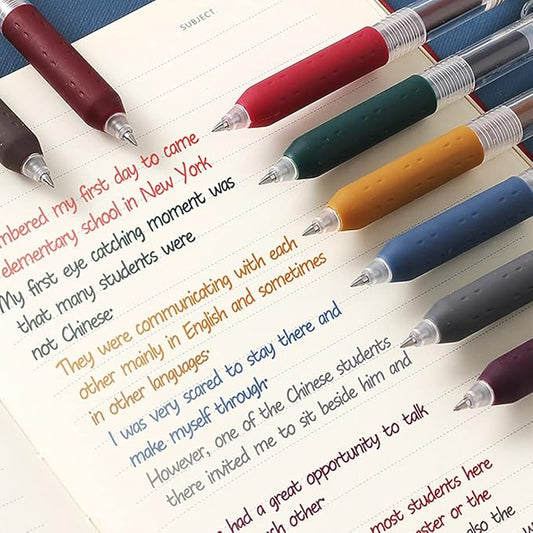 SUBJECT
mbered my first day to came
elementary school in New York
My first eye catching moment was
that many students were
not Chinese.
They were communicating with each
other mainly in English and sometimes
in other languages.
I was very scared to stay there and
make myself through.
However, one of the Chinese students
there invited me to sit beside him and
had a great opportunity to talk
ch other.
most students here
ester or the
also the